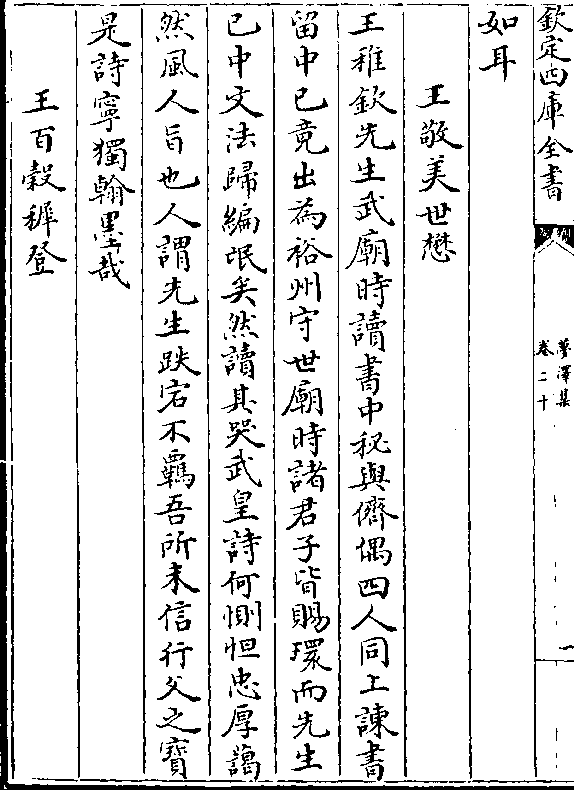 欽定四庫全書
夢澤集
卷二十
如耳
王敬美世懋
王稚欽先生武廟時讀書中秘與儕偶四人同上諫書
留中已竟出為裕州守世廟時諸君子皆賜環而先生
已中文法歸編氓矣然讀其哭武皇詩何惻怛忠厚藹
然風人旨也人謂先生跌宕不羈吾所未信行父之寶
是詩寧獨翰墨哉
王百穀穉登